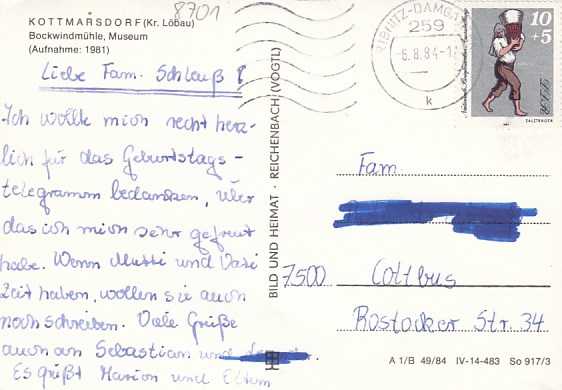 8701
KOTTMARSDORF (Kr. Löbau)
Bockwindmühle, Museum
(Aufnahme: 1981)
Liebe Fam. Schleuß!
Ich wollte mich recht herz-
lich für das Geburtstags-
telegramm bedanken, über
das ich mich sehr gefreut
habe. Wenn Mutti und Vati
Zeit haben, wollen sie auch
noch schreiben. Viele Grüße
auch an Sebastian und
Es grüßt Marion und Eltern
BILD UND HEIMAT · REICHENBACH (VOGTL)
RIBNITZ-DAMGA
259
-6.8.84-1
k
10
+5
DDR
SALZTRÄGER
Fam.
7500 Cottbus
Rostocker Str. 34
A 1/B 49/84 IV-14-483 So 917/3